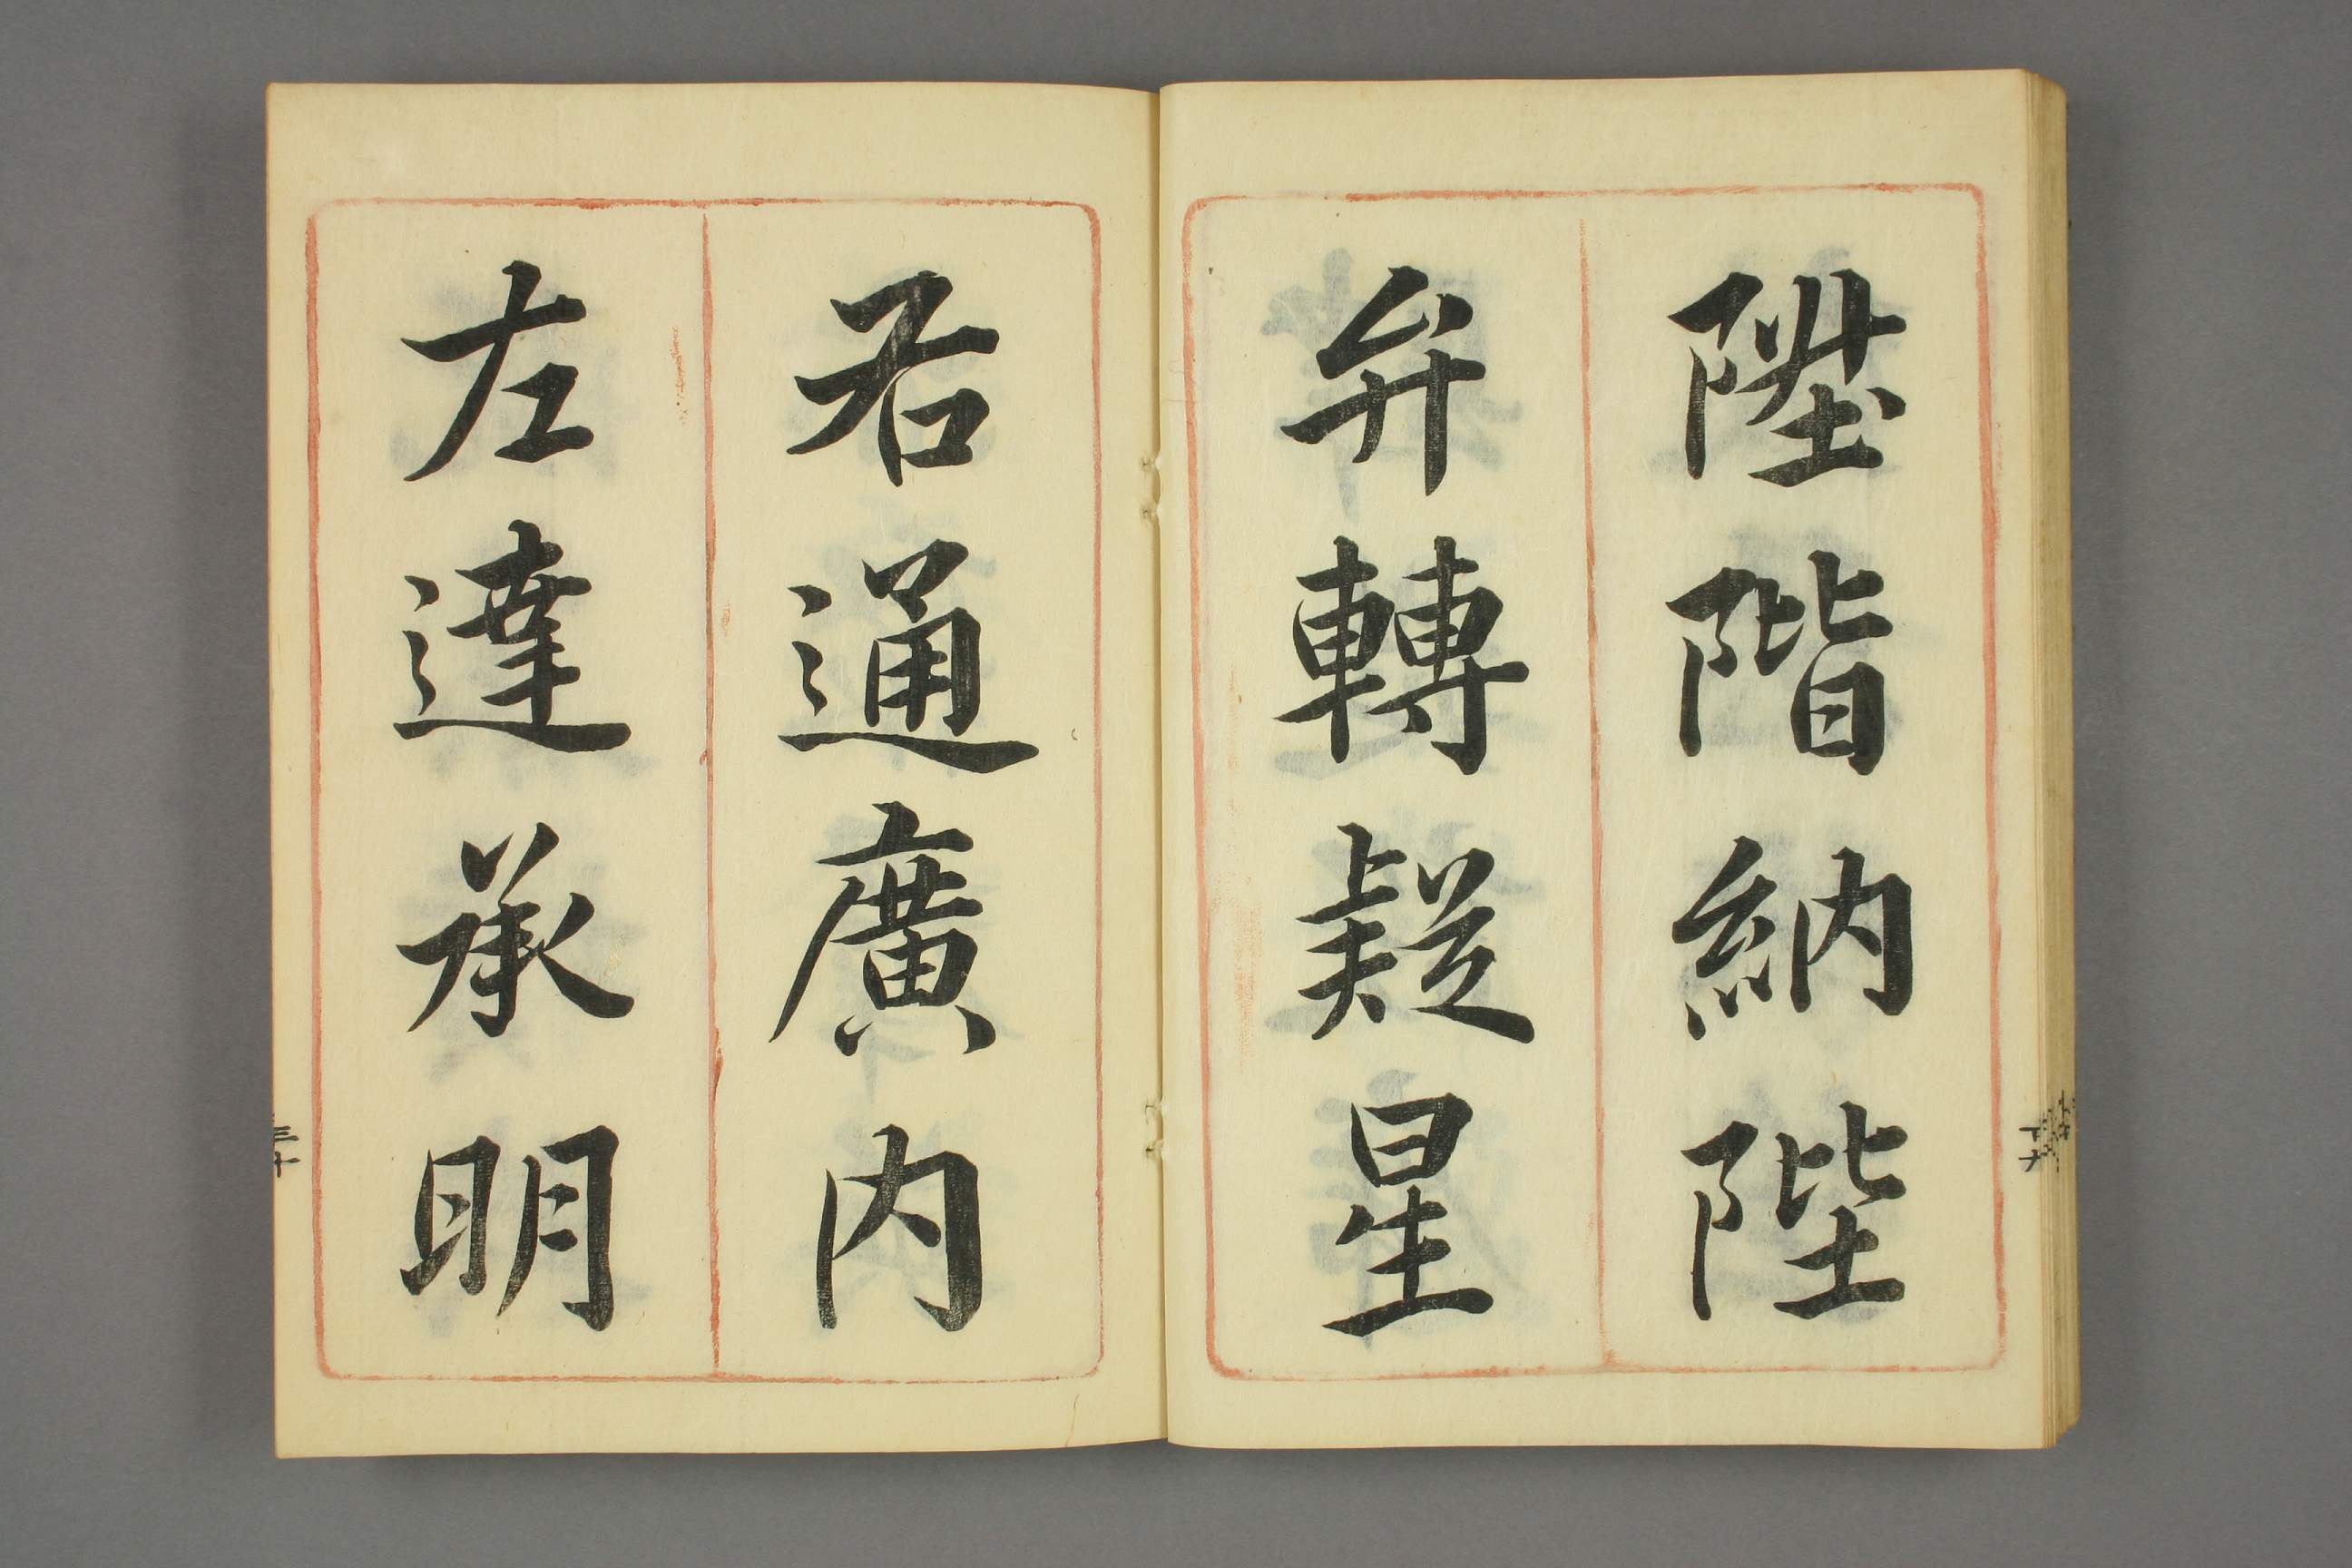 陞階納陛
弁轉疑星
右通廣內
左達承明
三十